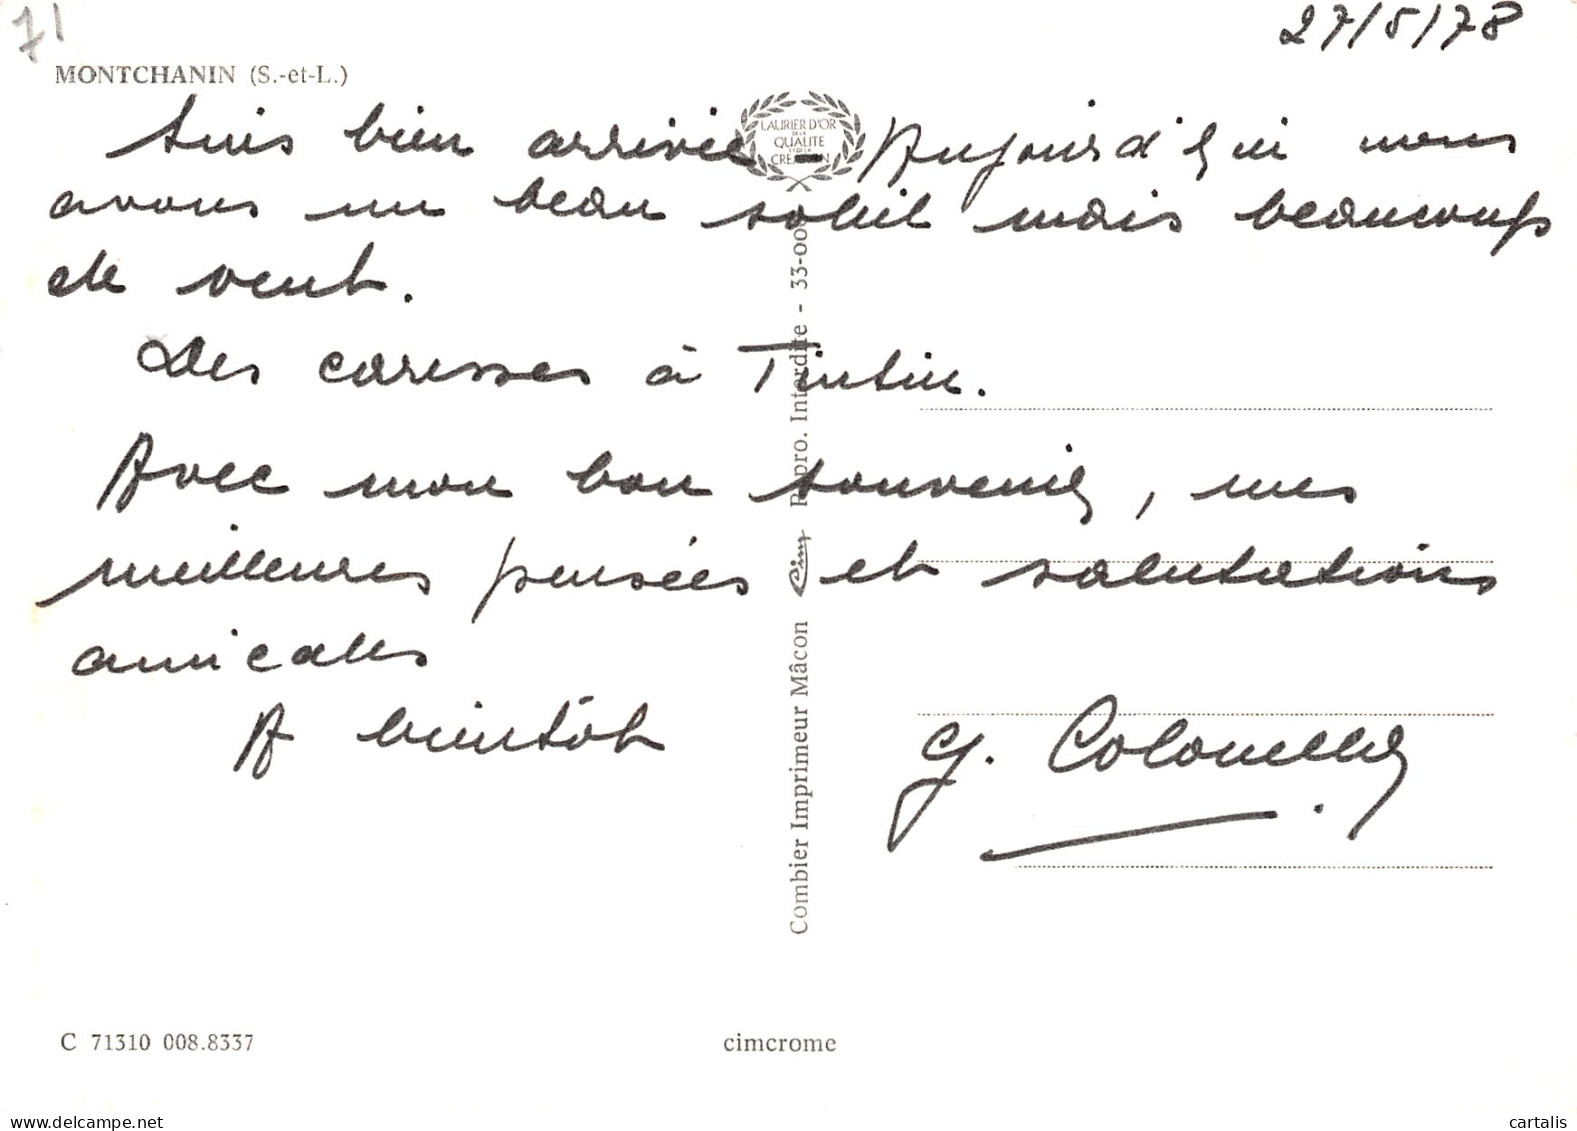 71
27/5/78
MONTCHANIN (S.-et-L.)
LAURIER D'OR
DE LA
QUALITE
ET DE LA
CREATION
Suis bien arrivée - Aujourd'hui nous
avons un beau soleil mais beaucoup
de vent.
Des caresses à Tintin.
Avec mon bon souvenir, mes
meilleures pensées et salutations
amicales
A bientôt
G. Colonelle
Combier Imprimeur Mâcon Cim Repro. Interdite - 33-00
C 71310 008.8337
cimcrome
delcampe.net
cartalis